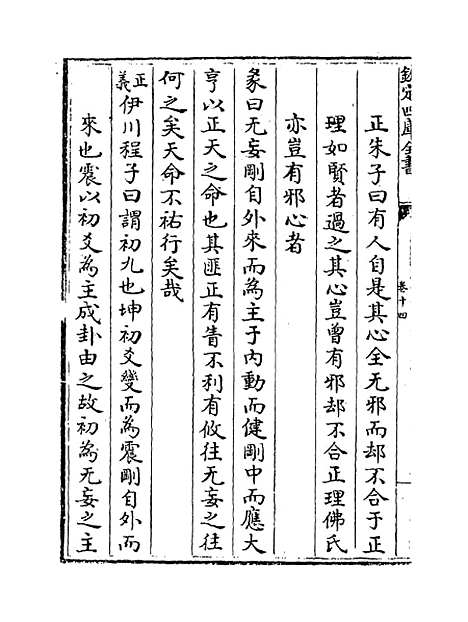 欽定四庫全書
卷十四
正朱子曰有人自是其心全无邪而却不合于正
理如賢者過之其心豈曾有邪却不合正理佛氏
亦豈有邪心者
彖曰无妄剛自外來而為主于內動而健剛中而應大
亨以正天之命也其匪正有眚不利有攸往无妄之往
何之矣天命不祐行矣哉
正義伊川程子曰謂初九也坤初爻變而為震剛自外而
來也震以初爻為主成卦由之故初為无妄之主